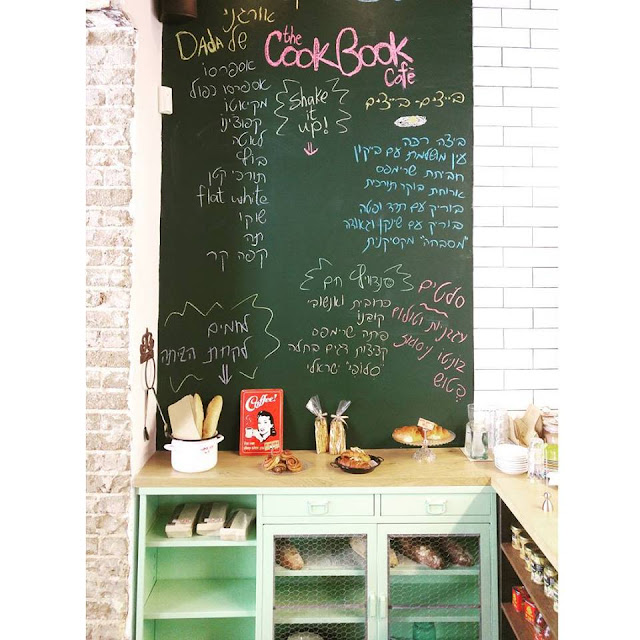 אורגני
של DADA
the
COOKBOOK
Cafè
אספרסו
אספרסו כפול
מקיאטו
קפוצ'ינו
לאטה
תורכי קטן
flat white
שוקו
תה
קפה קר
Shake
it
up!
ביצים-ביצים
ביצה רכה
עין מושלמת עם בייקון
חביתת שרימפס
ארוחת בוקר תורכית
בוריק עם תרד ופטה
בוריק עם שינקן וגאודה
"מסבחה" מקסיקנית
סנדוויץ' חם
כרובית ואנשובי
קופנו
פיתה שרימפס
קציצות דגים בחלה
"סלופי" ישראלי
סלטים
עגבניות וטולום
בוניטו ניסואז
פטוש
לחמים
לקחת הביתה
Coffee!